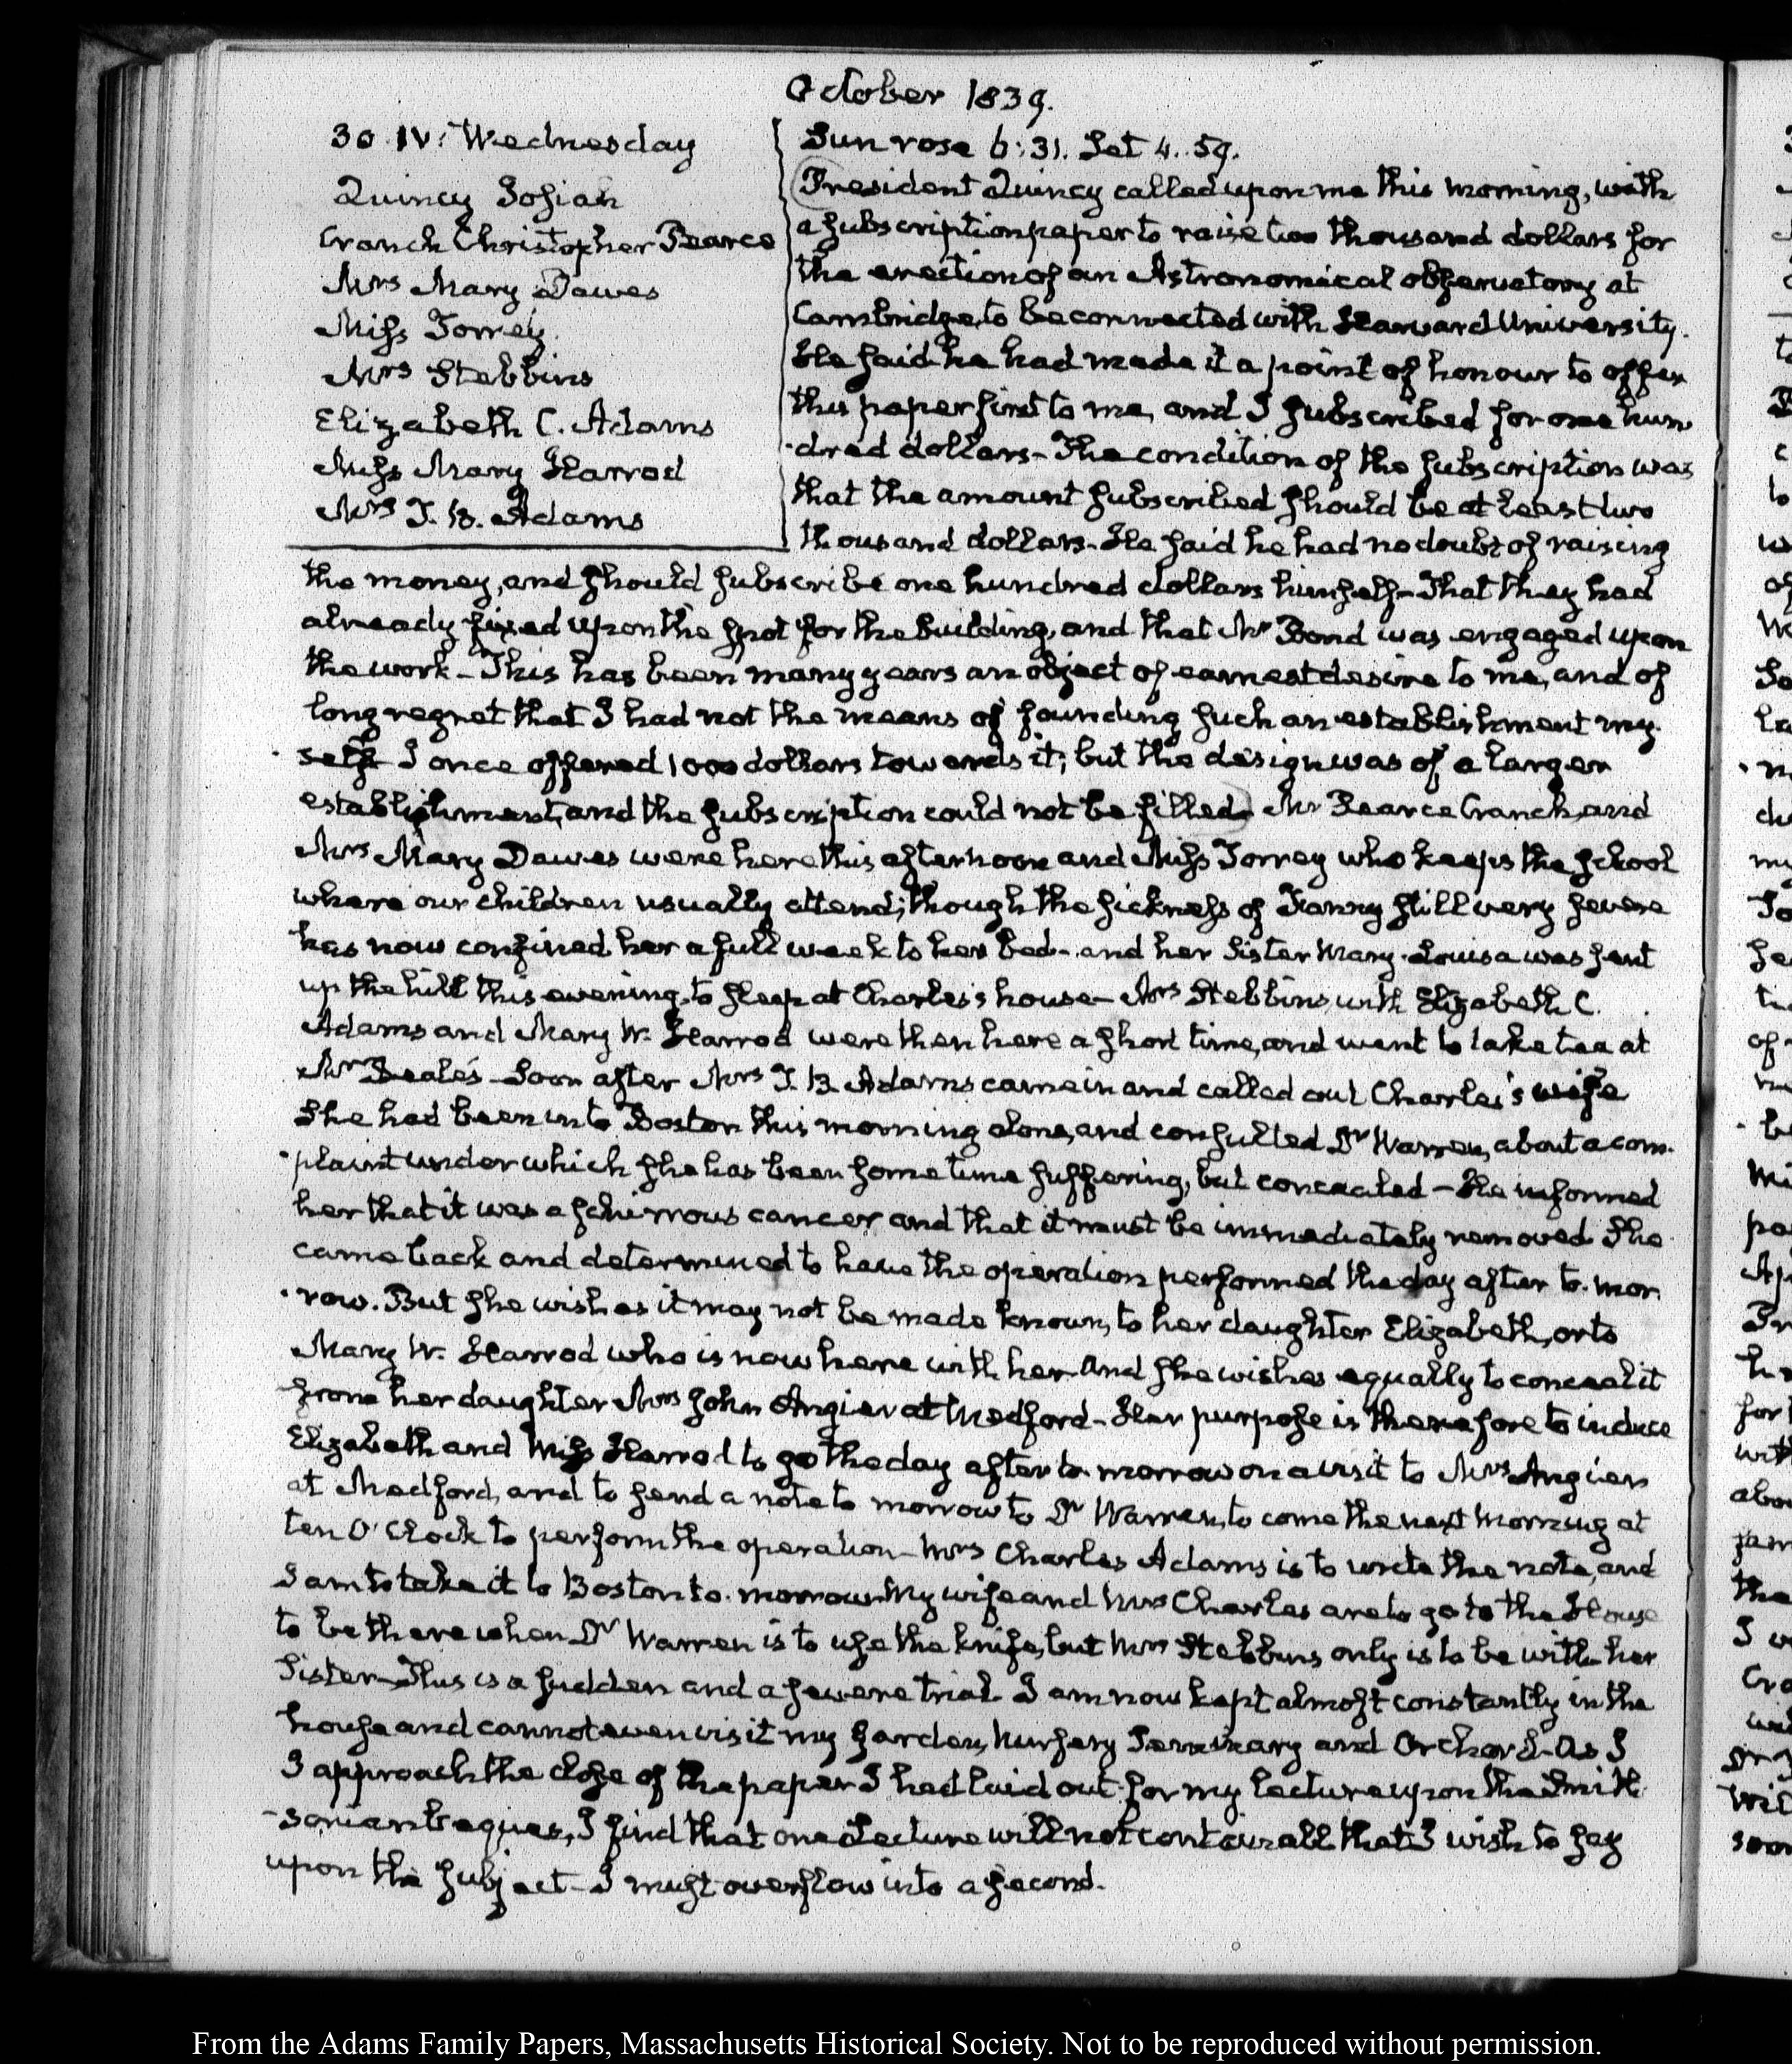 October 1839.
30 IV: Wednesday
Quincy Josiah
Cranch Christopher Pearce
Mrs Mary Dawes
Miss Torrey.
Mrs Stebbins
Elizabeth C. Adams
Miss Mary Harrod
Mrs T. B. Adams
Sun rose 6:31. Set 4..59.
President Quincy called upon me this morning, with
a subscription paper to raise two thousand dollars for
the erection of an Astronomical observatory at
Cambridge, to be connected with Harvard University.
He said he had made it a point of honour to offer
this paper first to me, and I subscribed for one hun
dred dollars- The condition of the subscription was
that the amount subscribed should be at least two
thousand dollars- He said he had no doubt of raising
the money, and should subscribe one hundred dollars himself- That they had
already fixed upon the spot for the building, and that Mr Bond was engaged upon
the work- This has been many years an object of earnest desire to me, and of
long regret that I had not the means of founding such an establishment my-
self I once offered 1000 dollars towards it; but the design was of a larger
establishment, and the subscription could not be filled. Mr Pearce Cranch, and
Mrs Mary Dawes were here this afternoon and Miss Torrey who keeps the school
where our children usually attend; though the sickness of Fanny still very severe
has now confined her a full week to her bed- and her Sister Mary-Louisa was sent
up the hill this evening, to sleep at Charles's house- Mrs Stebbins, with Elizabeth C.
Adams and Mary W. Harrod were then here a short time, and went to take tea at
Mr Beale's- Soon after Mrs T. B. Adams came in and called out Charles's wife
She had been into Boston this morning alone, and consulted Dr Warren, about a com-
plaint under which she has been some time suffering, but concealed- He informed
her that it was a schirrous cancer and that it must be immediately removed She
came back and determined to have the operation performed the day after to-mor
row. But she wishes it may not be made known, to her daughter Elizabeth, or to
Mary W. Harrod who is now here with her- And she wishes equally to conceal it
from her daughter Mrs John Angier at Medford- Her purpose is therefore to induce
Elizabeth and Miss Harrod to go the day after to-morrow on a visit to Mrs Angier
at Medford, and to send a note to morrow to Dr Warren, to come the next morning at
ten O'Clock to perform the operation- Mrs Charles Adams is to write the note, and
I am to take it to Boston to-morrow. My wife and Mrs Charles are to go to the House
to be there when Dr Warren is to use the knife, but Mrs Stebbins only is to be with her
Sister- This is a sudden and a severe trial. I am now kept almost constantly in the
house and cannot even visit my Garden, Nursery Seminary and Orchard- As I
I approach the close of the paper I had laid out for my lecture upon the Smith-
sonian bequest, I find that one Lecture will not contain all that I wish to say
upon the subject- I must overflow into a second.
From the Adams Family Papers, Massachusetts Historical Society. Not to be reproduced without permission.